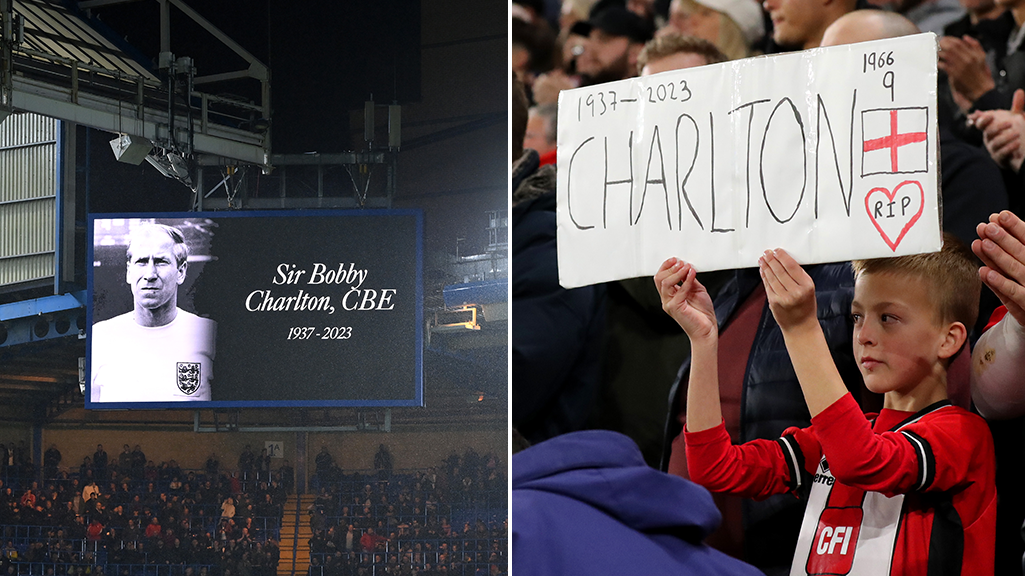 Sir Bobby
Charlton, CBE
1937 - 2023
1A
1937-2023
CHARLTON
1966
9
RIP
CFI